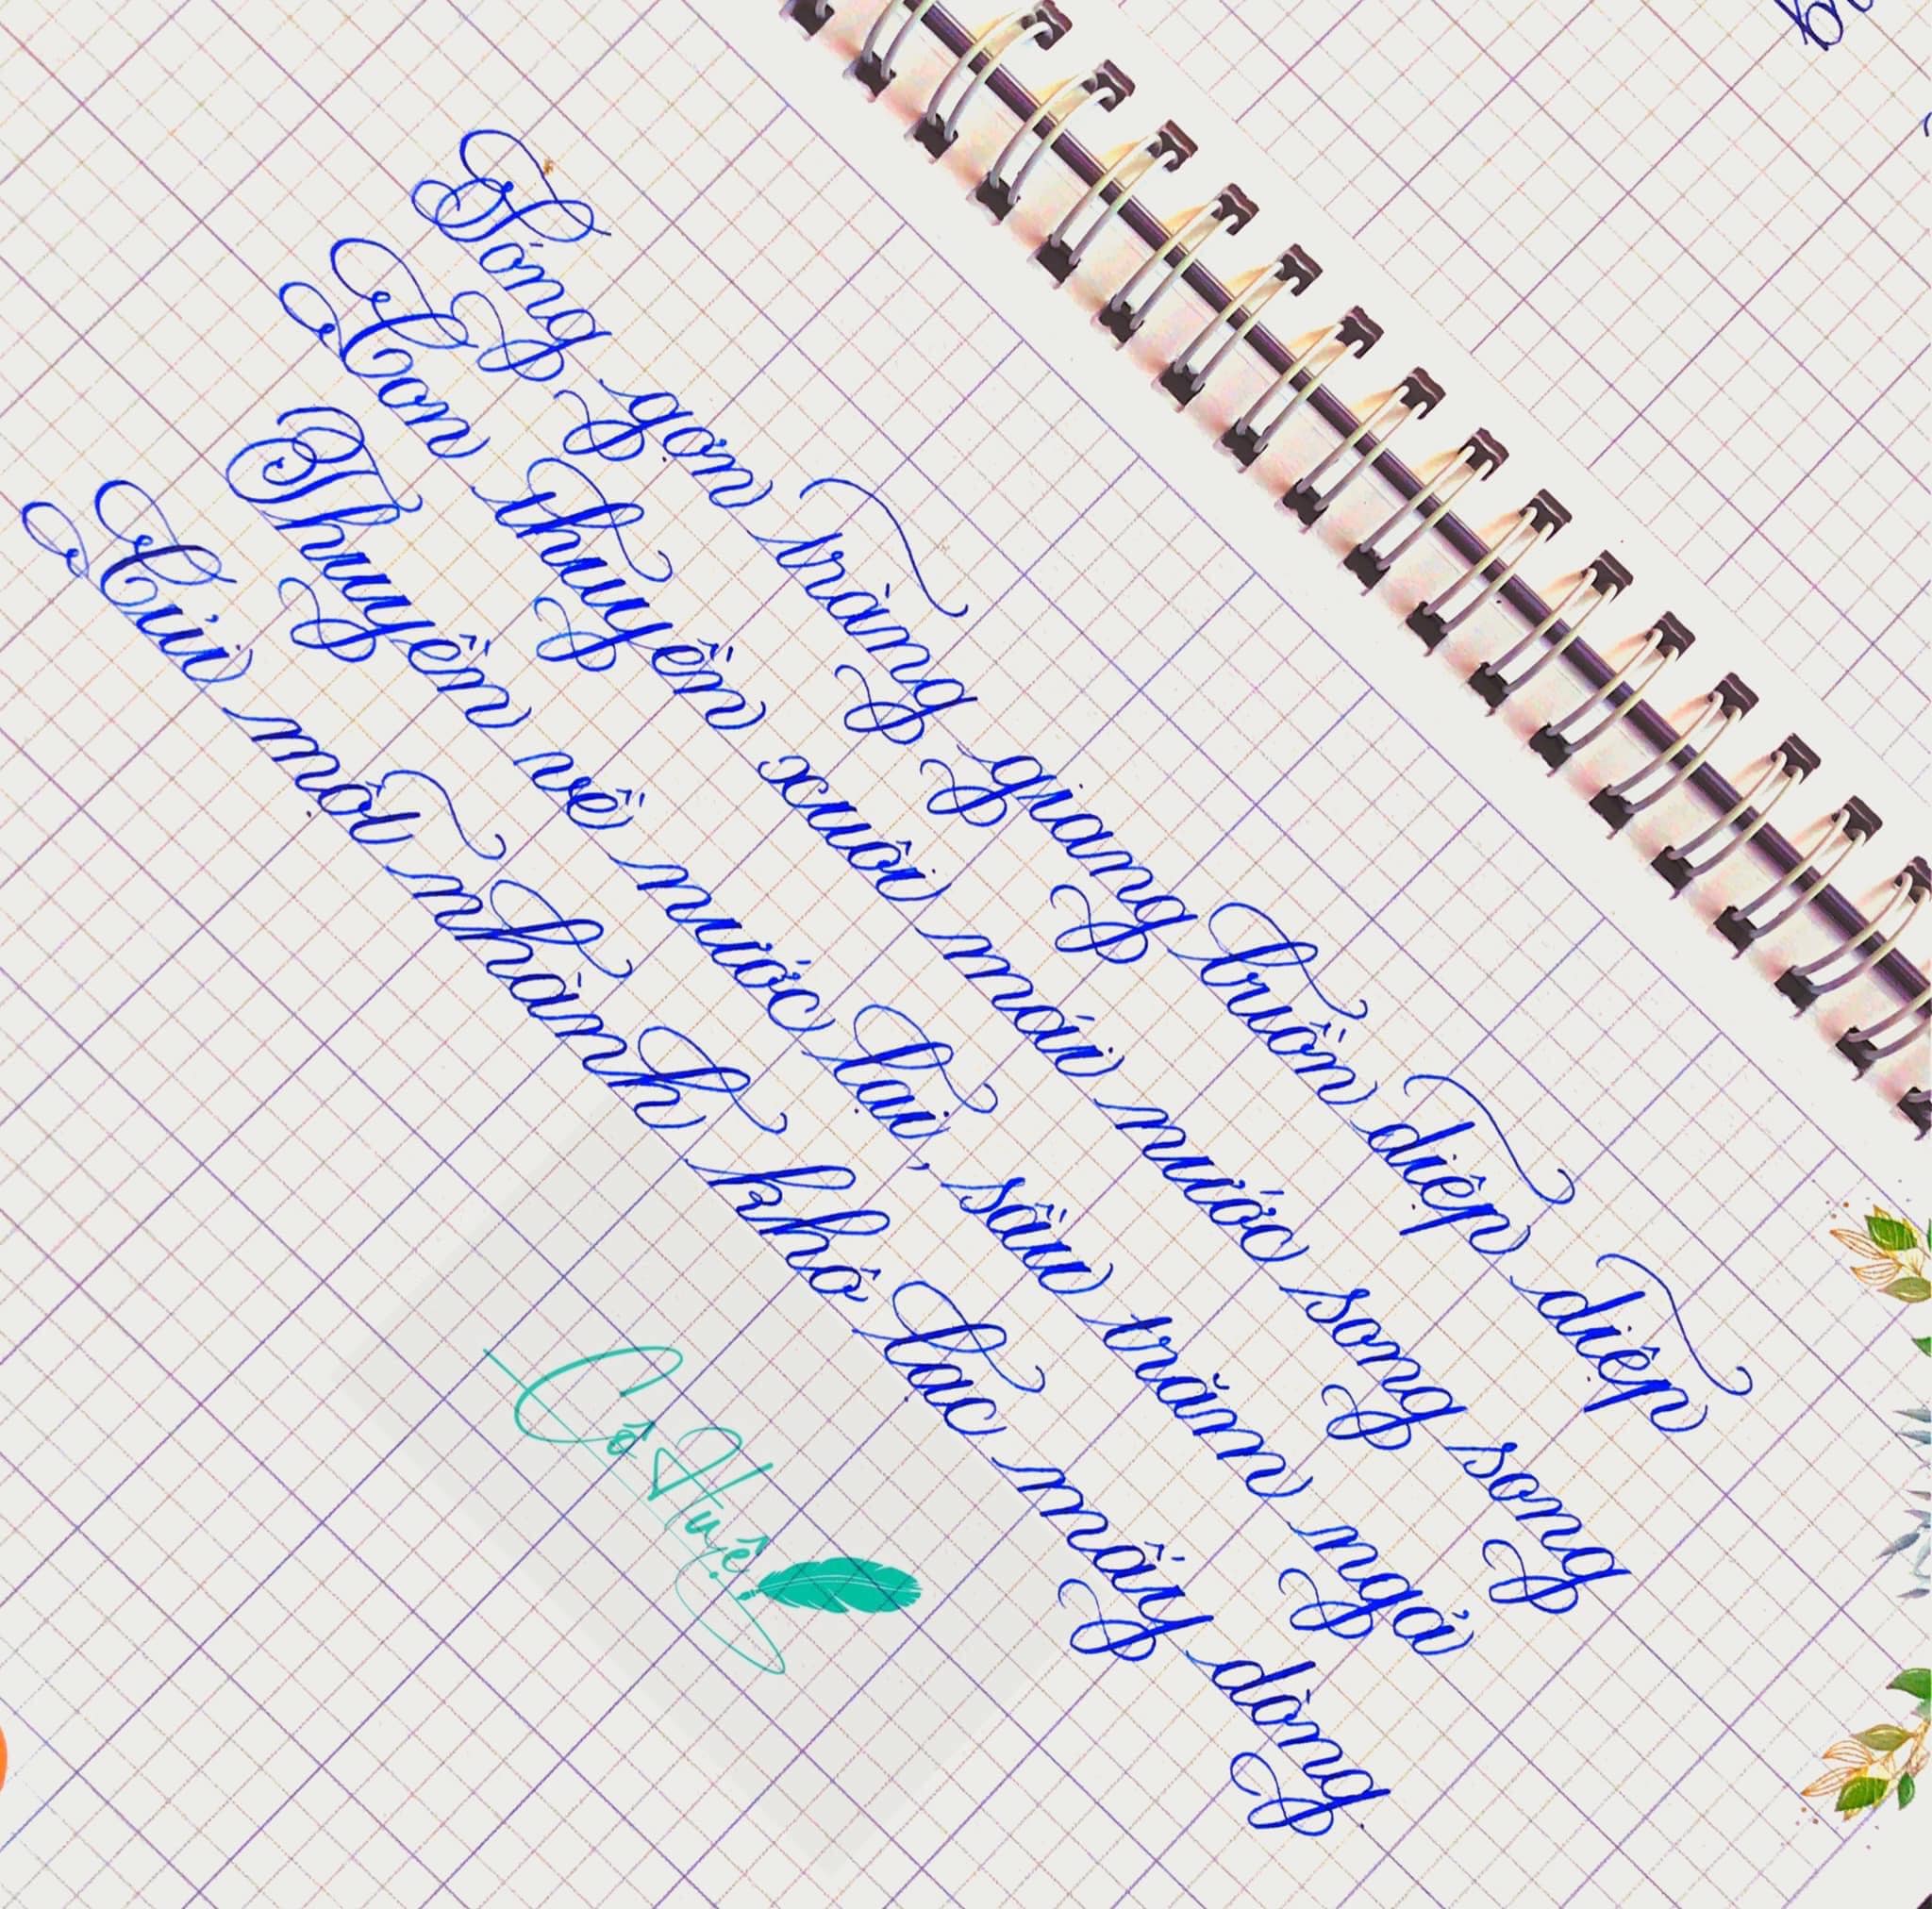 Sóng gợn tràng giang buồn điệp điệp
Con thuyền xuôi mái nước song song
Thuyền về nước lại, sầu trăm ngả
Củi một nhành khô lạc mấy dòng
Cô Huệ